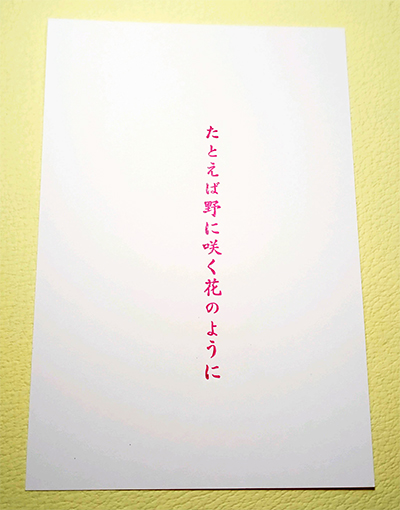 たとえば野に咲く花のように